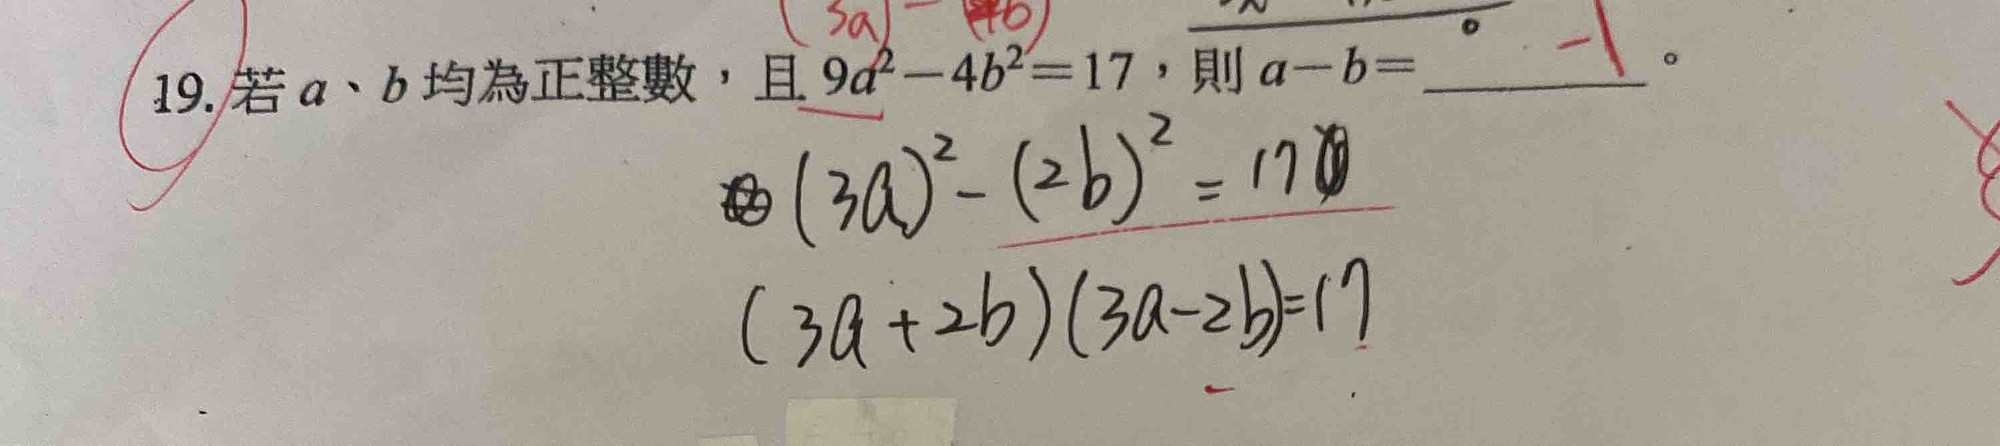 (3a) - (4b)
19. 若 a、b 均為正整數，且 9a²－4b²＝17，則 a－b＝ -1 。
(3a)² - (2b)² = 17
(3a+2b)(3a-2b)=17